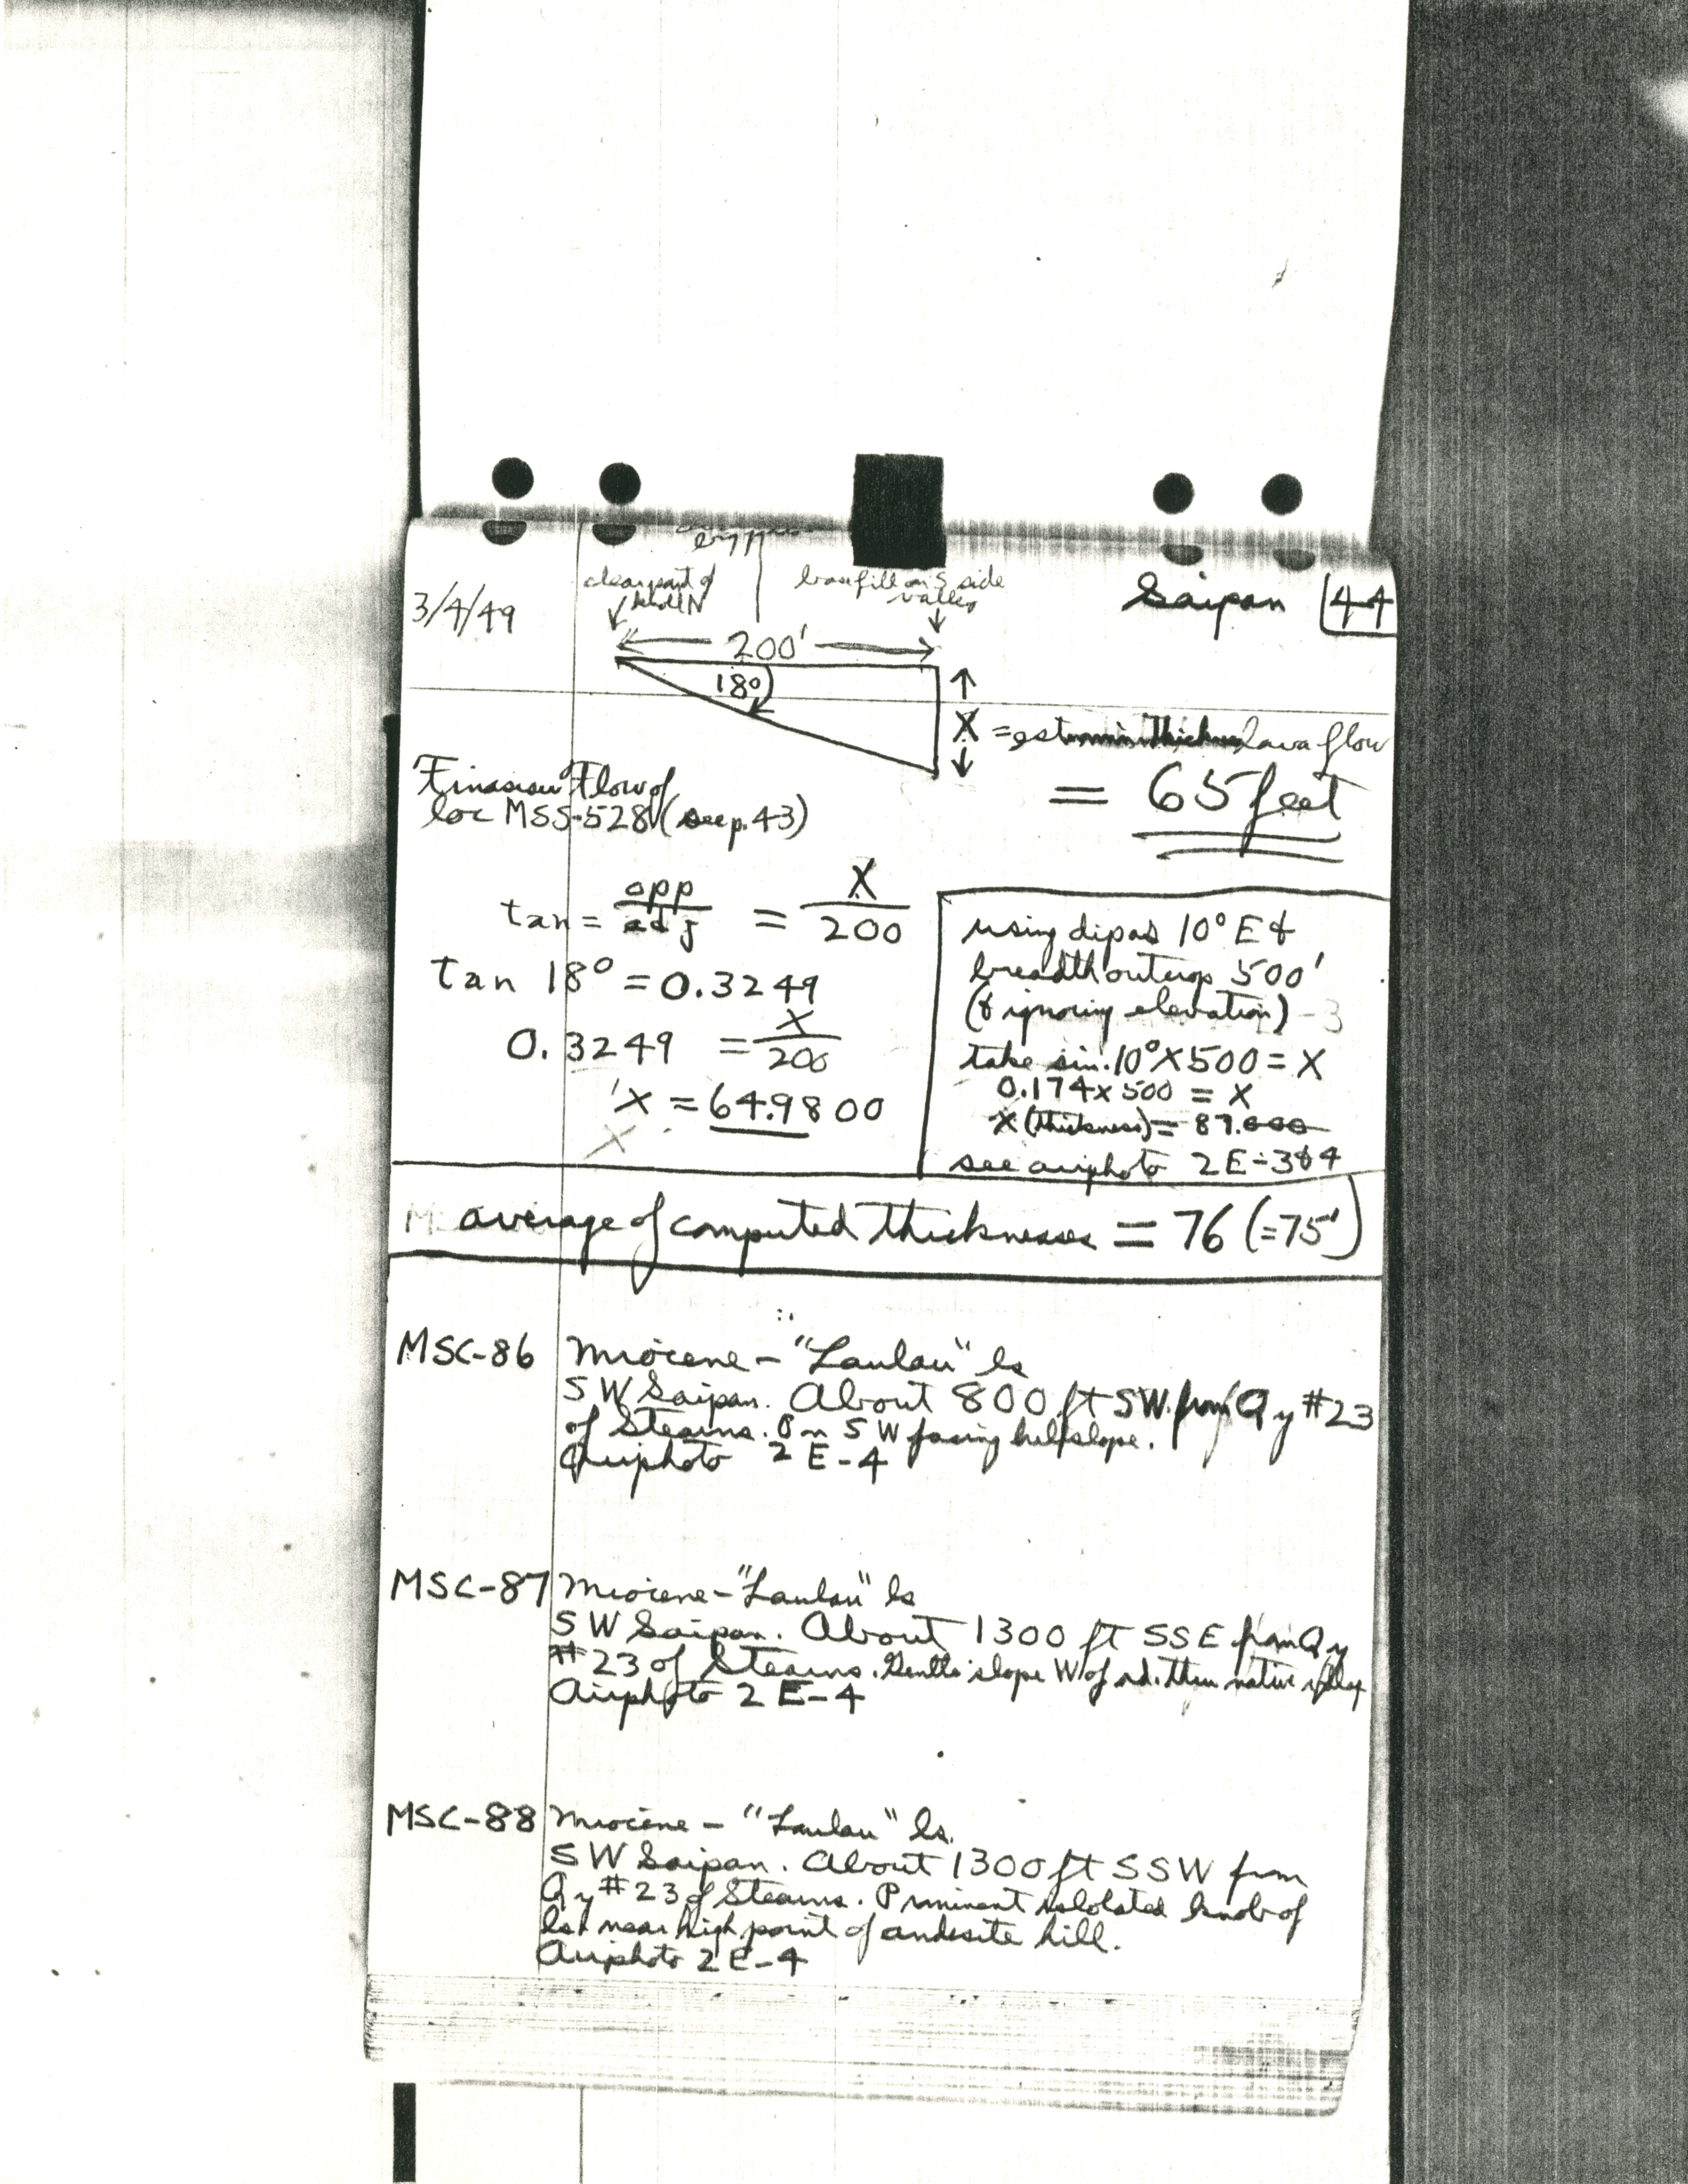 clean part of
knoll N
base fill on S side
valley
Saipan 44
3/4/49
200'
18°
X = est lava flow
= 65 feet
Flow of
loc MSS-528 (see p. 43)
tan = opp/adj = X/200
tan 18° = 0.3249
0.3249 = X/200
X = 64.9800
using dip as 10° E &
breadth outcrop 500'
(& ignoring elevation)
take sin. 10° X 500 = X
0.174 x 500 = X
X (thickness) = 87.000
see airphoto 2E-3&4
average of computed thicknesses = 76 (=75')
MSC-86 Miocene - "Laulau" ls
SW Saipan. About 800 ft SW. from Qy #23
of Stearns. On SW facing hillslope.
Airphoto 2E-4
MSC-87 Miocene - "Laulau" ls
SW Saipan. About 1300 ft SSE from Qy
#23 of Stearns. Gentle slope W of rd. thru native village
Airphoto 2E-4
MSC-88 Miocene - "Laulau" ls.
SW Saipan. About 1300 ft SSW from
Qy #23 of Stearns. Prminent isolated knob of
ls. near high point of andesite hill.
Airphoto 2E-4